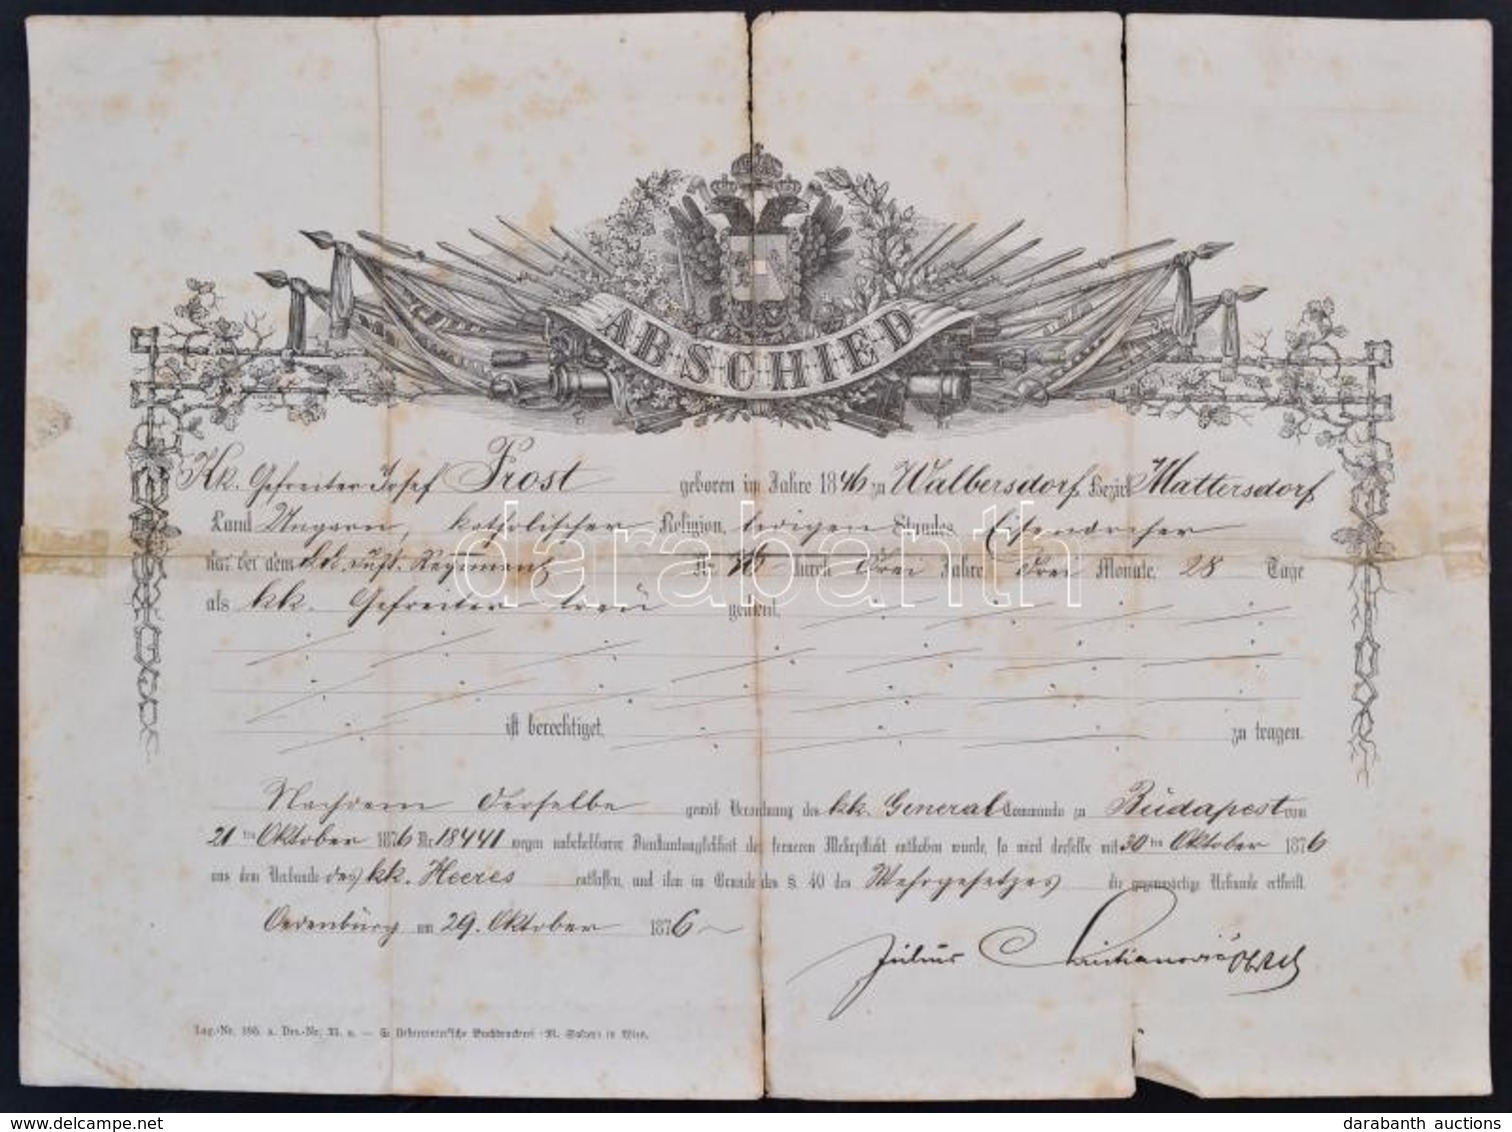 ABSCHIED
kk. Gefreiter Josef Prost geboren im Jahre 1846 zu Walbersdorf, Bezirk Mattersdorf
Land Ungarn, katholischer Religion, ledigen Standes, Eisendreher
hat bei dem kk. Inft. Regiment Nr. 76 durch drei Jahre drei Monate, 28 Tage
als kk. Gefreiter treu gedient,
ist berechtiget, zu tragen.
Nachdem derselbe gemäß Verordnung des kk. General Commando zu Budapest vom
21ten Oktober 1876 Nr. 18441 wegen unbehebbarer Dienstuntauglichkeit der ferneren Wehrpflicht enthoben wurde, so wird derselbe mit 30ten Oktober 1876
aus dem Verbande des kk. Heeres entlassen, und ihm im Grunde des §. 40 des Wehrgesetzes die gegenwärtige Urkunde ertheilt.
Oedenburg am 29. Oktober 1876
Julius Christianović Obstl
Lag.-Nr. a. Drs.-Nr. - Buchdruckerei in Wien.
darabanth
darabanth auctions